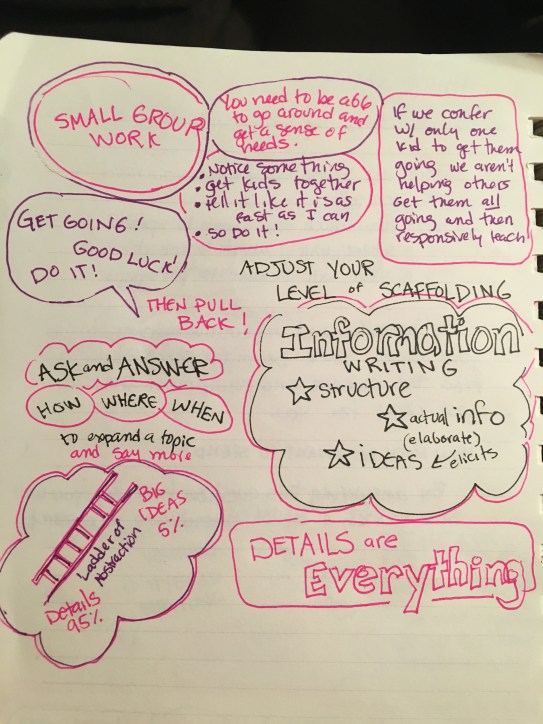 SMALL GROUP
WORK
You need to be able
to go around and
get a sense of
needs.
• Notice something
• get kids together
• tell it like it is as
fast as I can
• SO DO IT!
If we confer
w/ only one
kid to get them
going we aren't
helping others
Get them all
going and then
responsively teach
GET GOING!
GOOD LUCK!
DO IT!
THEN PULL
BACK!
ADJUST YOUR
LEVEL of SCAFFOLDING
ASK and ANSWER
HOW WHERE WHEN
to expand a topic
and say more
Information
WRITING
structure
actual info
(elaborate)
IDEAS elicits
BIG
IDEAS
5%
Ladder of
Abstraction
Details
95%
DETAILS are
Everything